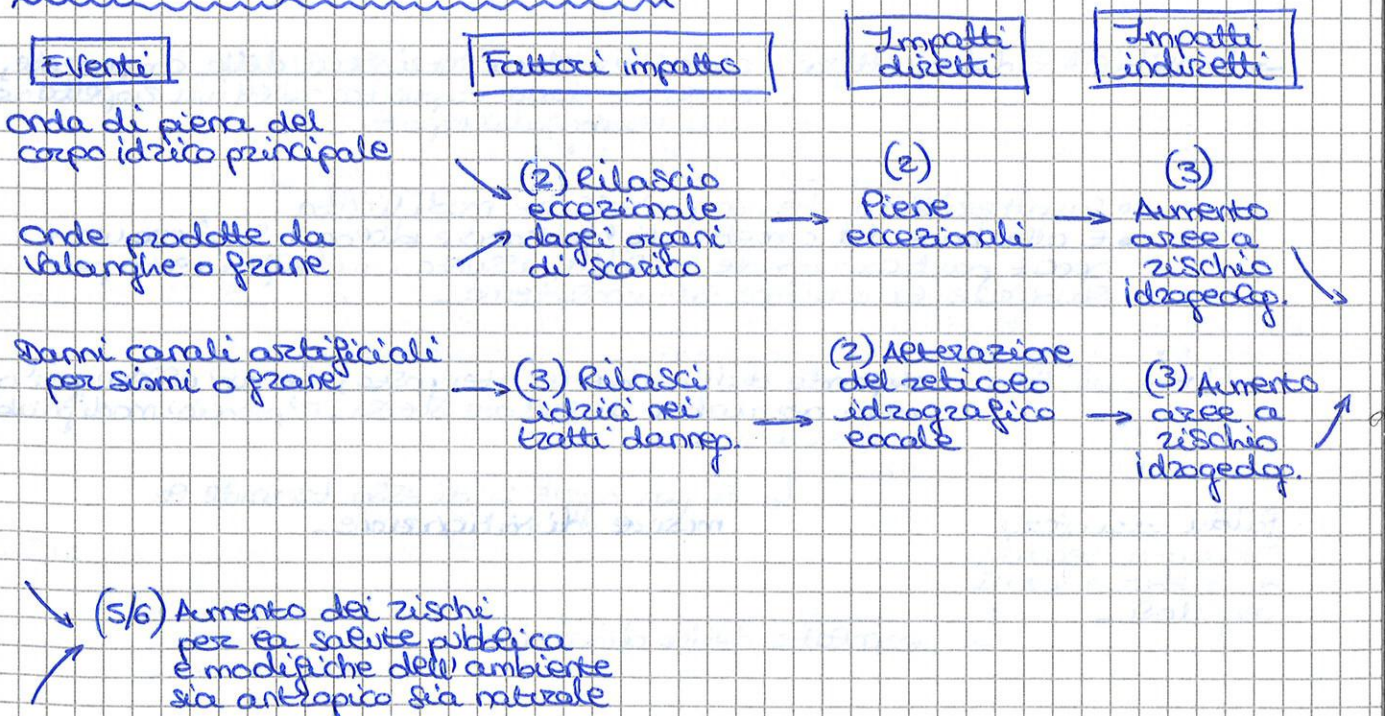 Eventi
Fattori impatto
Impatti
diretti
Impatti
indiretti
onda di piena del
corpo idrico principale
onde prodotte da
valanghe o frane
(2) Rilascio
eccezionale
dagli organi
di scarico
(2)
Piene
eccezionali
(3)
Aumento
aree a
rischio
idrogeolog.
Danni canali artificiali
per sismi o frane
(3) Rilasci
idrici nei
tratti dannegg.
(2) Alterazione
del reticolo
idrografico
locale
(3) Aumento
aree a
rischio
idrogeolog.
(5/6) Aumento dei rischi
per la salute pubblica
e modifiche dell'ambiente
sia antropico sia naturale